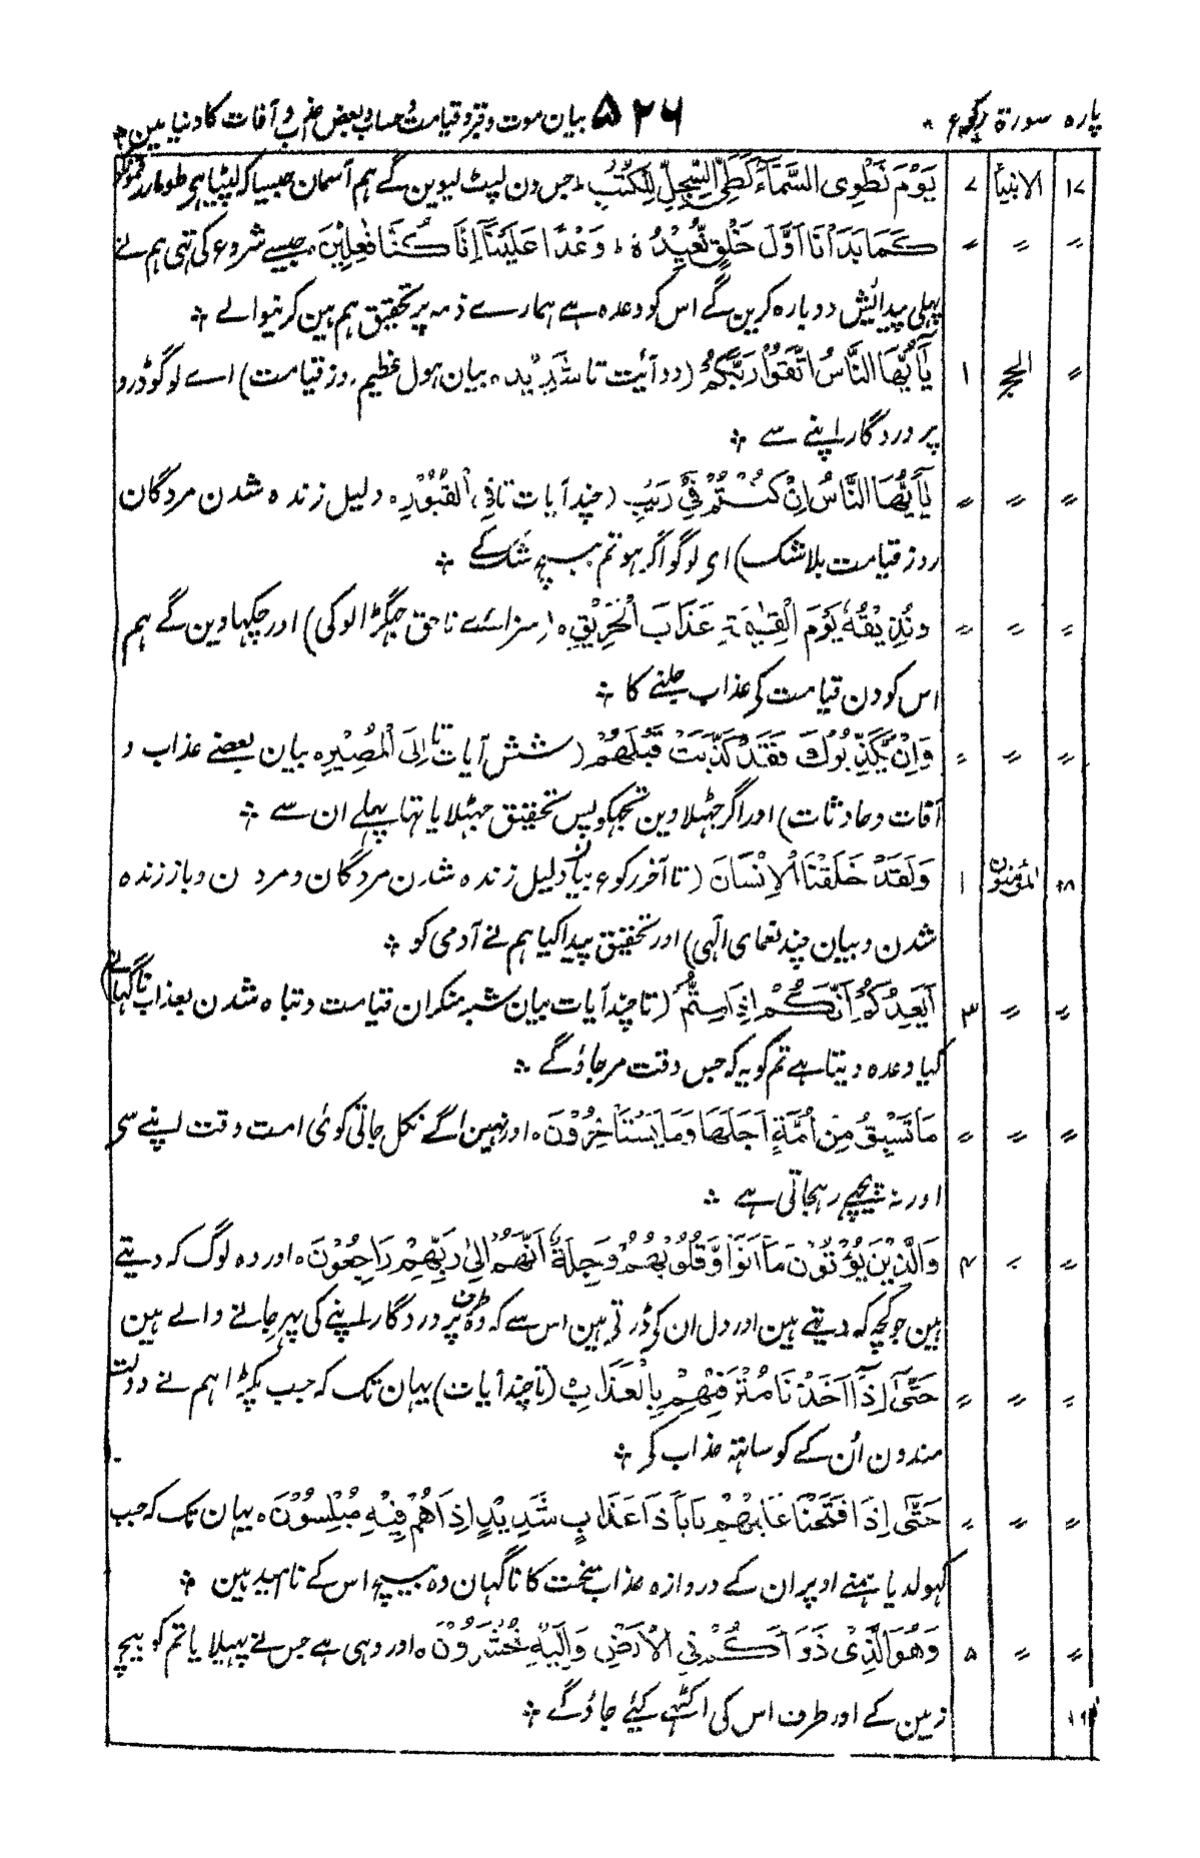 پارہ سورۃ رکوع ۵۲۶ بیان موت و قبر و قیامت و حساب و بعض عذاب و آفات کا دنیا مین
۱۷ الانبیاء ۷ یَوْمَ نَطْوِی السَّمَآءَ كَطَیِّ السِّجِلِّ لِلْكُتُبِ جس دن لپیٹ لیوین گے ہم آسمان جیسا کہ لپیٹا ہے طومار
〃 〃 〃 كَمَا بَدَاْنَا اَوَّلَ خَلْقٍ نُّعِیْدُهٗ ط وَعْدًا عَلَیْنَا اِنَّا كُنَّا فٰعِلِیْنَ جیسے شروع کی تہی ہم نے
پہلی پیدائش دوبارہ کرین گے اس کو وعدہ ہے ہمارے ذمہ پر تحقیق ہم ہین کرنیوالے
〃 الحج ۱ یٰۤاَیُّهَا النَّاسُ اتَّقُوْا رَبَّكُمْ (دو آئیت تا شَدِیْد، بیان ہول عظیم روز قیامت) اے لوگو ڈرو
پروردگار اپنے سے
〃 〃 〃 یٰۤاَیُّهَا النَّاسُ اِنْ كُنْتُمْ فِیْ رَیْبٍ (چند آیات تا فِی الْقُبُوْرِ، دلیل زندہ شدن مردگان
روز قیامت بلاشک) ای لوگو اگر ہو تم بیچ شک کے
〃 〃 〃 وَنُذِیْقُهٗ یَوْمَ الْقِیٰمَةِ عَذَابَ الْحَرِیْقِ (سزائے ناحق جہگڑالو کی) اور چکہاوین گے ہم
اس کو دن قیامت کی عذاب جلنے کا
〃 〃 〃 وَاِنْ یُّكَذِّبُوْكَ فَقَدْ كَذَّبَتْ قَبْلَهُمْ (شش آیات تا اِلَی الْمَصِیْرِ، بیان بعضے عذاب و
آفات و حادثات) اور اگر جہٹلاوین تجہکو پس تحقیق جہٹلایا تہا پہلے ان سے
۱۸ المؤمنون ۱ وَلَقَدْ خَلَقْنَا الْاِنْسَانَ (تا آخر رکوع بیان دلیل زندہ شدن مردگان و مردن و باز زندہ
شدن و بیان چند نعمای الٰہی) اور تحقیق پیدا کیا ہم نے آدمی کو
〃 〃 ۳ اَیَعِدُكُمْ اَنَّكُمْ اِذَا مِتُّمْ (تا چند آیات بیان شبہ منکران قیامت و تباہ شدن بعذاب ناگہانے)
کیا وعدہ دیتا ہے تم کو یہ کہ جس وقت مر جاؤ گے
〃 〃 〃 مَا تَسْبِقُ مِنْ اُمَّةٍ اَجَلَهَا وَمَا یَسْتَاْخِرُوْنَ اور نہین آگے نکل جاتی کوئی امت وقت اپنے سی
اور نہ پیچہے رہجاتی ہے
〃 〃 ۴ وَالَّذِیْنَ یُؤْتُوْنَ مَاۤ اٰتَوْا وَّقُلُوْبُهُمْ وَجِلَةٌ اَنَّهُمْ اِلٰی رَبِّهِمْ رٰجِعُوْنَ اور وہ لوگ کہ دیتے
ہین جو کچہ کہ دیتے ہین اور دل ان کی ڈرتی ہین اس سے کہ وہ طرف پروردگار اپنے کی پہر جانے والے ہین
〃 〃 〃 حَتّٰۤی اِذَاۤ اَخَذْنَا مُتْرَفِیْهِمْ بِالْعَذَابِ (تا چند آیات) یہان تک کہ جب پکڑا ہم نے دولت
مندون اُن کے کو ساتھ عذاب کر
〃 〃 〃 حَتّٰۤی اِذَا فَتَحْنَا عَلَیْهِمْ بَابًا ذَا عَذَابٍ شَدِیْدٍ اِذَا هُمْ فِیْهِ مُبْلِسُوْنَ یہان تک کہ جب
کہولدیا ہمنے اوپر ان کے دروازہ عذاب سخت کا ناگہان وہ بیچ اس کے ناامید ہین
〃 〃 ۵ وَهُوَ الَّذِیْ ذَرَاَكُمْ فِی الْاَرْضِ وَاِلَیْهِ تُحْشَرُوْنَ اور وہی ہے جس نے پہیلایا تم کو بیچ
۱۹ زمین کے اور طرف اس کی اکٹہے کیئے جاؤ گے